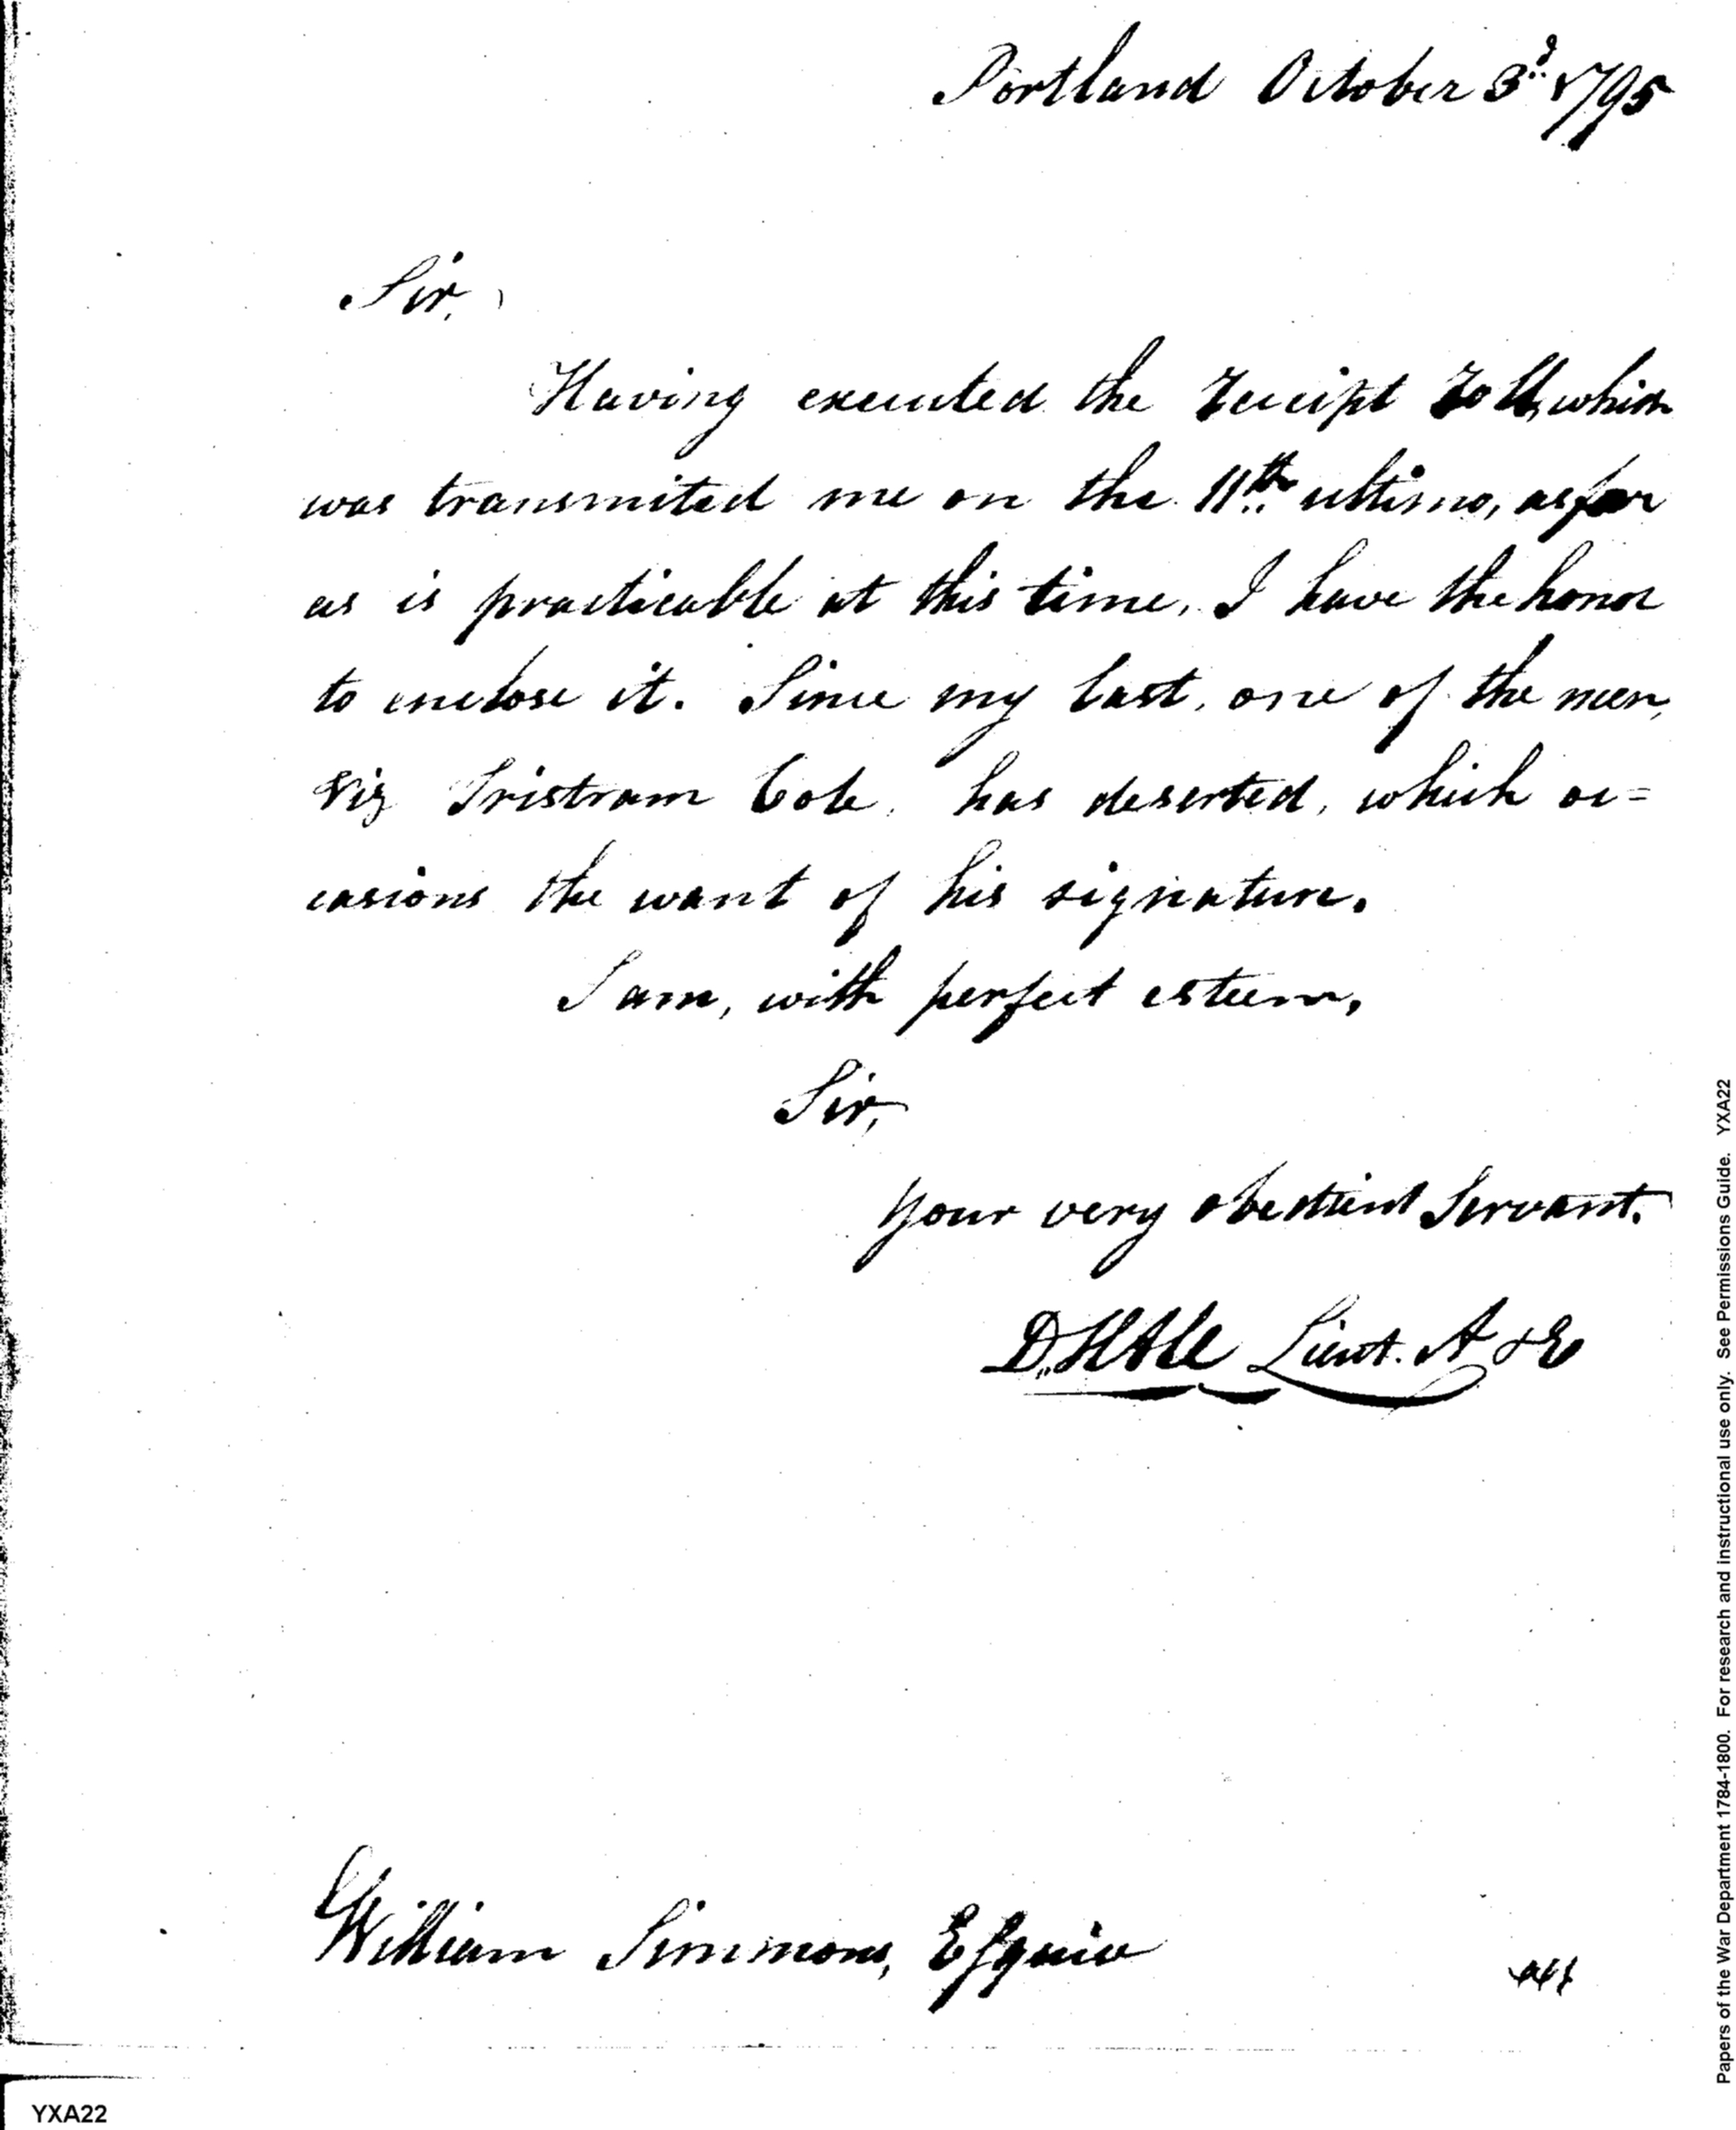 Portland October 3d 1795
Sir,
Having executed the receipt roll, which
was transmited me on the 11th ultimo, as far
as is practicable at this time, I have the honor
to enclose it. Since my last, one of the men,
viz Tristram Cole, has deserted, which oc=
casions the want of his signature.
I am, with perfect esteem,
Sir,
Your very obedient Servant.
D. Hale Lieut. A & E
William Simmons, Esquire
YXA22
Papers of the War Department 1784-1800. For research and instructional use only. See Permissions Guide. YXA22